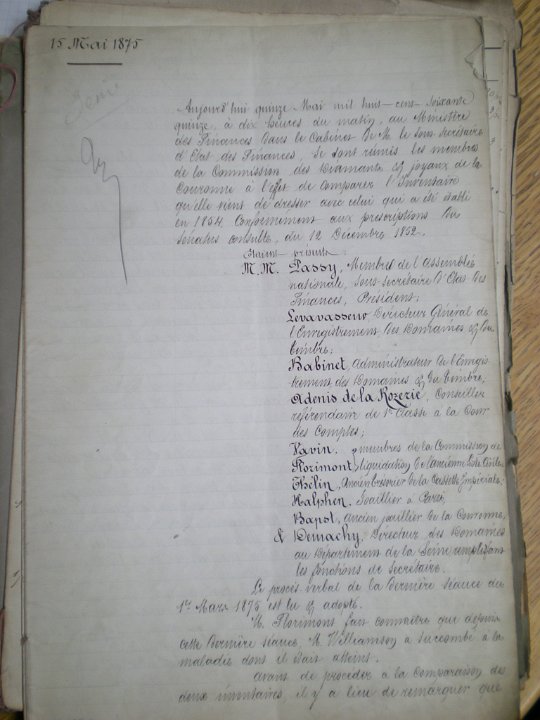 15 Mai 1875
Aujourd'hui quinze Mai mil huit-cent-soixante
quinze, à dix heures du matin, au Ministère
des Finances dans le Cabinet de M. le sous-Secrétaire
d'Etat des Finances, se sont réunis les membres
de la Commission des Diamants & joyaux de la
Couronne à l'effet de comparer l'Inventaire
qu'elle vient de dresser avec celui qui a été établi
en 1854, conformément aux prescriptions du
sénatus consulte, du 12 Décembre 1852.
Etaient présents:
M.M. Passy, Membre de l'Assemblée
nationale, sous-secrétaire d'Etat des
Finances, Président;
Levavasseur Directeur Général de
l'Enregistrement, des Domaines & du
timbre;
Babinet, administrateur de l'Enregis-
trement, des Domaines & du timbre,
Adenis de la Rozerie, Conseiller
référendaire de 1re classe à la Cour
des Comptes;
Vavin, membres de la Commission de
Florimont, liquidation de l'ancienne Liste Civile
Thélin, Ancien trésorier de la Cassette Impériale;
Halphen, Joaillier à Paris
Bapst, ancien joaillier de la Couronne,
& Demachy, Directeur des Domaines
au Département de la Seine remplissant
les fonctions de Secrétaire.
Le procès verbal de la dernière séance du
1er Mars 1875 est lu & adopté.
M. Florimont fait connaître que depuis
cette dernière séance M. Williamson a succombé à la
maladie dont il était atteint.
avant de procéder à la comparaison des
deux inventaires, il y a lieu de remarquer que